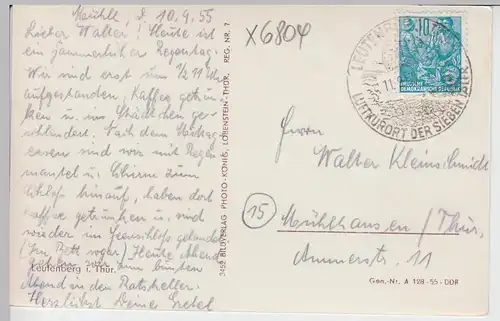 d. 10.9.55
Lieber Walter! Heute ist
ein jämmerlicher Regentag.
Wir sind erst um 1/2 11 Uhr
aufgestanden, Kaffee getrun-
ken u. ins Städtchen ge-
schlendert. Nach dem Mittag-
essen sind wir mit Regen-
mantel u. Schirm zum
Schloss hinauf, haben dort
Kaffee getrunken u. sind
wieder im gelandet
(Im Bett sogar) Heute Abend
gehen wir zum bunten
Abend in den Ratskeller.
Herzlichst Deine Gretel
Leutenberg i. Thür.
3452 BILDVERLAG PHOTO-KÖNIG, LOBENSTEIN-THÜR. REG. NR. 7
X6804
LEUTENBERG
LUFTKURORT DER SIEBEN TÄLER
DEUTSCHE
DEMOKRATISCHE REPUBLIK
Herrn
Walter Kleinschmidt
15
Mühlhausen/Thür.
Ammerstr. 11
Gen.-Nr. A 128-55-DDR